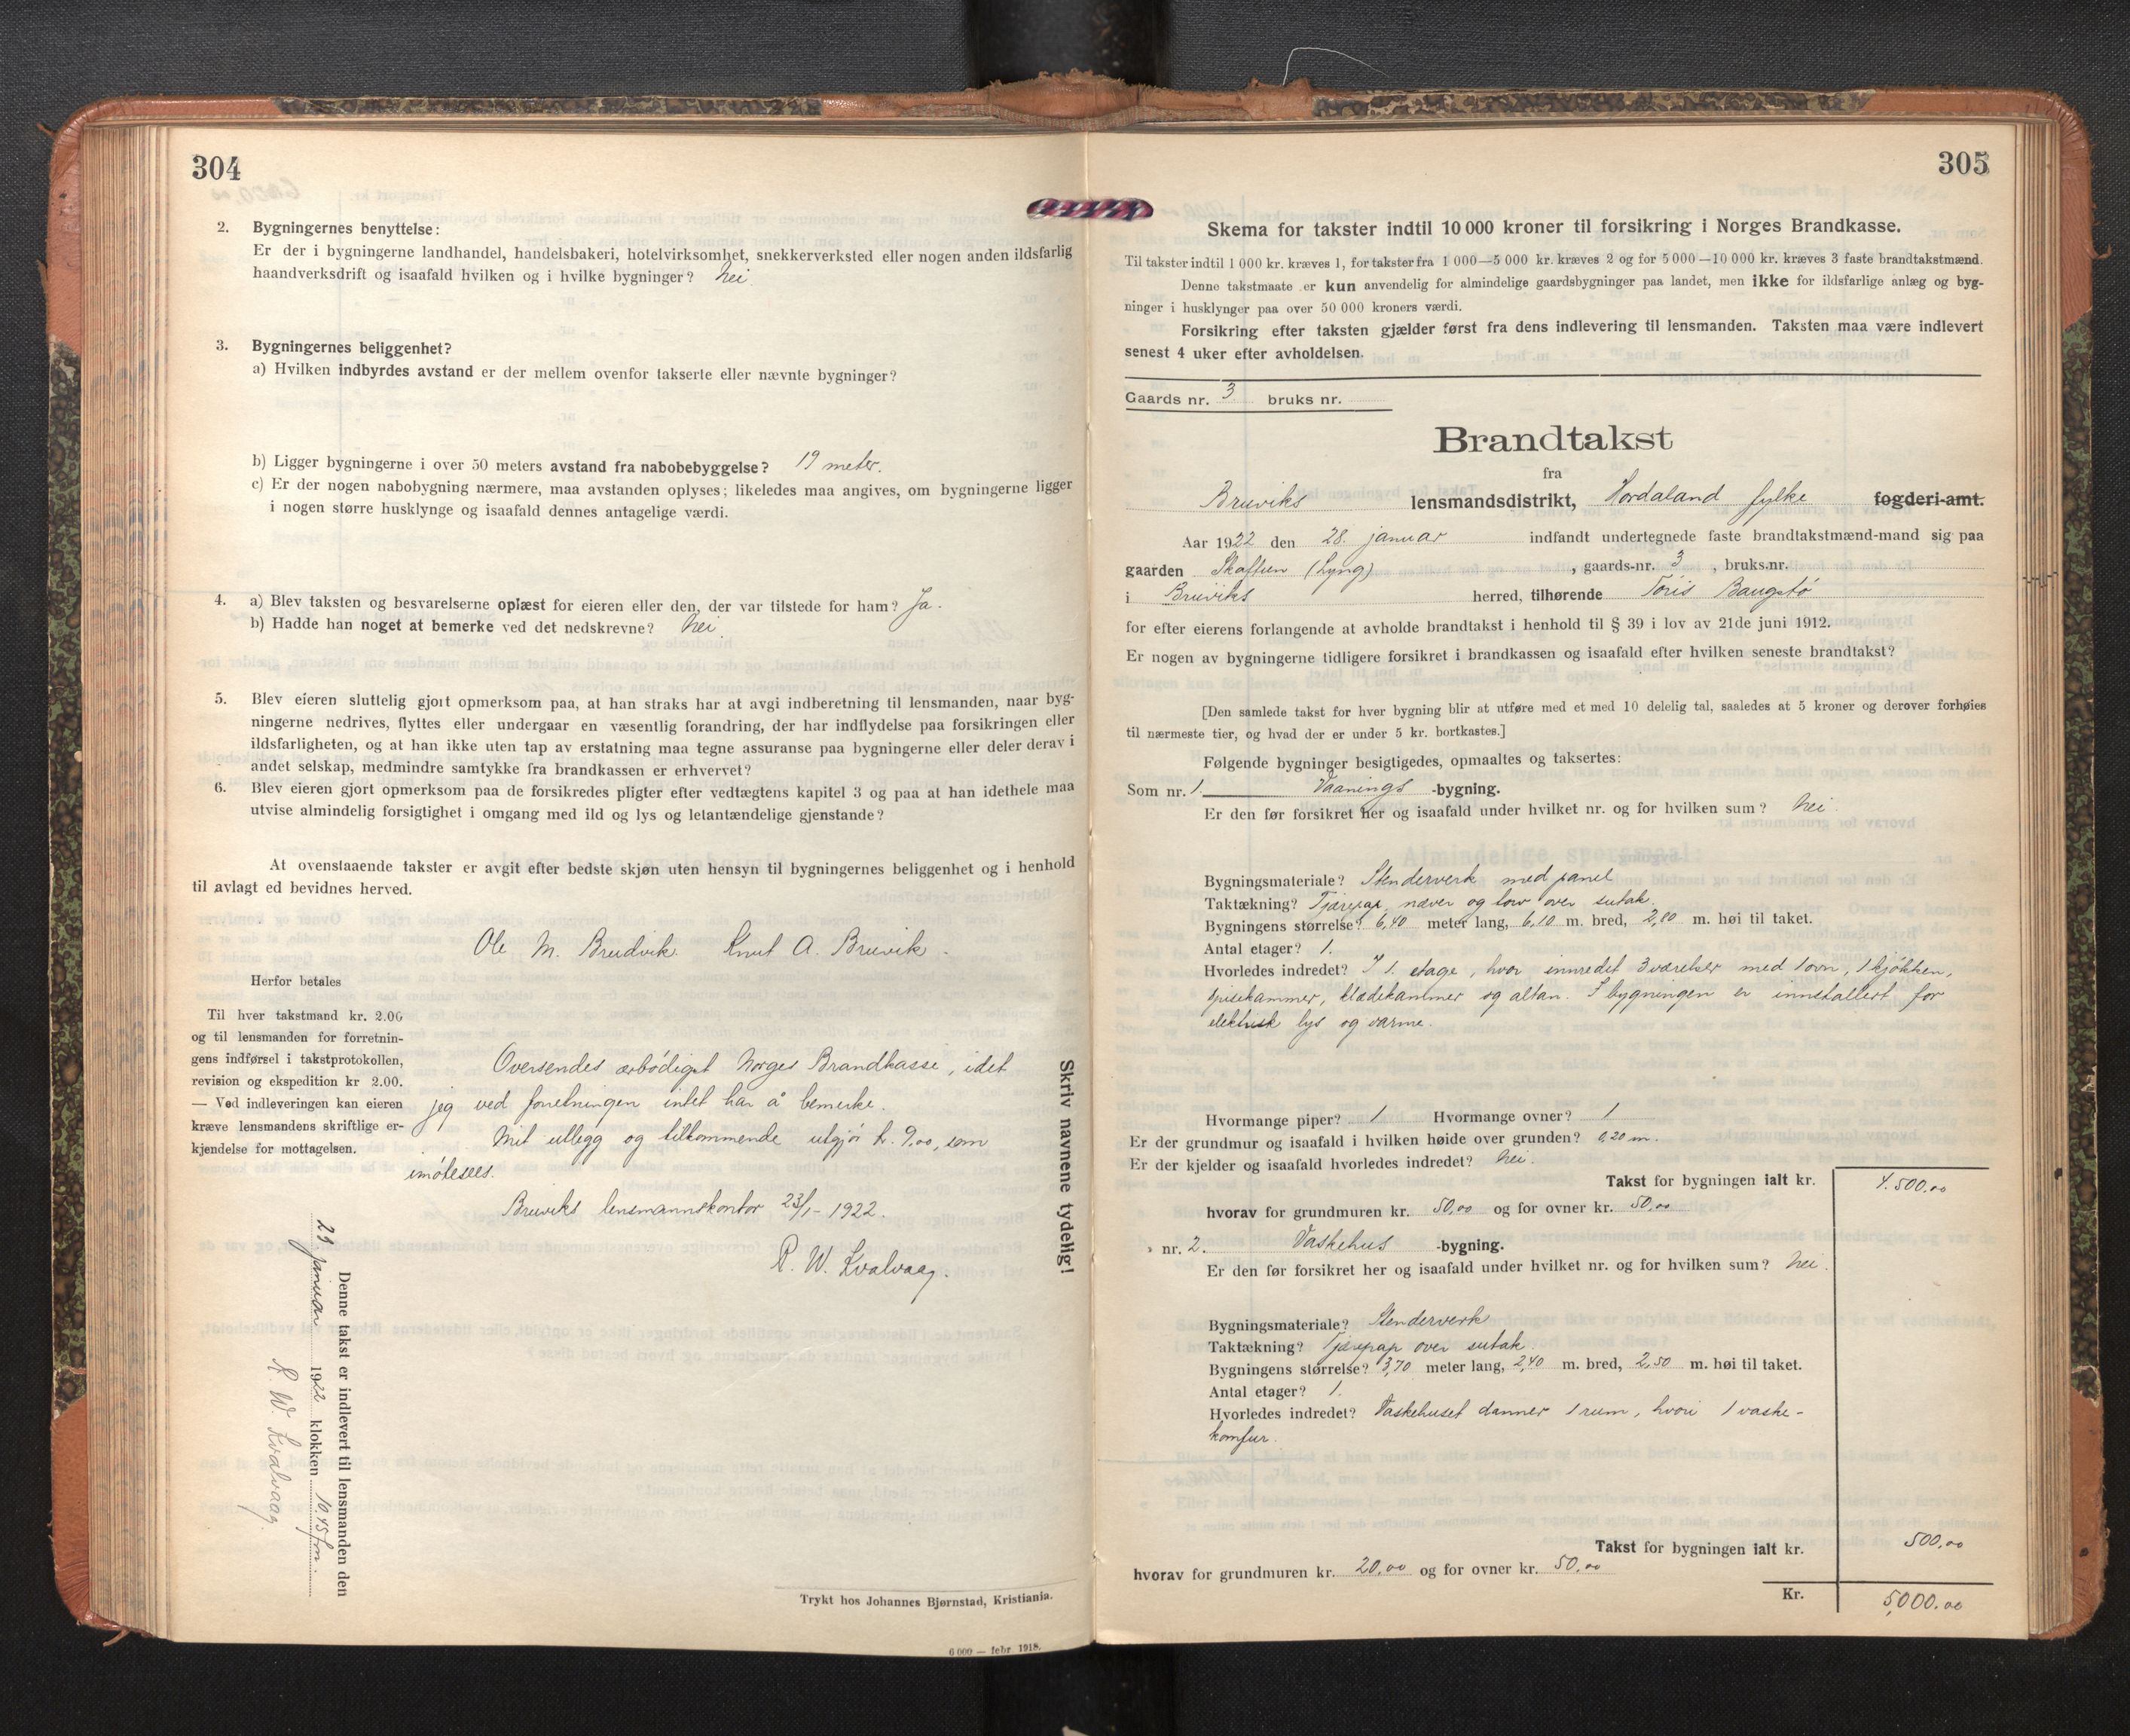 304
2. Bygningernes benyttelse:
Er der i bygningerne landhandel, handelsbakeri, hotelvirksomhet, snekkerverksted eller nogen anden ildsfarlig
haandverksdrift og isaafald hvilken og i hvilke bygninger? Nei
3. Bygningernes beliggenhet?
a) Hvilken indbyrdes avstand er der mellem ovenfor takserte eller nævnte bygninger?
b) Ligger bygningerne i over 50 meters avstand fra nabobebyggelse? 19 meter.
c) Er der nogen nabobygning nærmere, maa avstanden oplyses; likeledes maa angives, om bygningerne ligger
i nogen større husklynge og isaafald dennes antagelige værdi.
4. a) Blev taksten og besvarelserne oplæst for eieren eller den, der var tilstede for ham? Ja.
b) Hadde han noget at bemerke ved det nedskrevne? Nei.
5. Blev eieren sluttelig gjort opmerksom paa, at han straks har at avgi indberetning til lensmanden, naar byg-
ningerne nedrives, flyttes eller undergaar en væsentlig forandring, der har indflydelse paa forsikringen eller
ildsfarligheten, og at han ikke uten tap av erstatning maa tegne assuranse paa bygningerne eller deler derav i
andet selskap, medmindre samtykke fra brandkassen er erhvervet?
6. Blev eieren gjort opmerksom paa de forsikredes pligter efter vedtægtens kapitel 3 og paa at han idethele maa
utvise almindelig forsigtighet i omgang med ild og lys og letantændelige gjenstande?
At ovenstaaende takster er avgit efter bedste skjøn uten hensyn til bygningernes beliggenhet og i henhold
til avlagt ed bevidnes herved.
Ole M. Brudvik. Knut A. Bruvik.
Herfor betales
Til hver takstmand kr. 2.00
og til lensmanden for forretnin-
gens indførsel i takstprotokollen,
revision og ekspedition kr 2.00.
— Ved indleveringen kan eieren
kræve lensmandens skriftlige er-
kjendelse for mottagelsen.
Oversendes ærbødigst Norges Brandkasse, idet
jeg ved forretningen intet har å bemerke.
Mit utlegg og tilkommende utgjør kr. 9,00, som
imøtesees.
Bruviks lensmannskontor 23/1-1922.
P. W. Kvalvaag.
Skriv navnene tydelig!
Denne takst er indlevert til lensmanden den
23 januar 1922 klokken 10.45 fm.
P. W. Kvalvaag.
Trykt hos Johannes Bjørnstad, Kristiania.
6 000 — febr. 1918.
305
Skema for takster indtil 10 000 kroner til forsikring i Norges Brandkasse.
Til takster indtil 1 000 kr. kræves 1, for takster fra 1 000—5 000 kr. kræves 2 og for 5 000—10 000 kr. kræves 3 faste brandtakstmænd.
Denne takstmaate er kun anvendelig for almindelige gaardsbygninger paa landet, men ikke for ildsfarlige anlæg og byg-
ninger i husklynger paa over 50 000 kroners værdi.
Forsikring efter taksten gjælder først fra dens indlevering til lensmanden. Taksten maa være indlevert
senest 4 uker efter avholdelsen.
Gaards nr. 3 bruks nr.
Brandtakst
fra
Bruviks lensmandsdistrikt, Hordaland fylke fogderi-amt.
Aar 1922 den 28. januar indfandt undertegnede faste brandtakstmænd-mand sig paa
gaarden Skaftun (Lyng), gaards-nr. 3, bruks.nr.
i Bruviks herred, tilhørende Baugstø
for efter eierens forlangende at avholde brandtakst i henhold til § 39 i lov av 21de juni 1912.
Er nogen av bygningerne tidligere forsikret i brandkassen og isaafald efter hvilken seneste brandtakst?
[Den samlede takst for hver bygning blir at utføre med et med 10 delelig tal, saaledes at 5 kroner og derover forhøies
til nærmeste tier, og hvad der er under 5 kr. bortkastes.]
Følgende bygninger besigtigedes, opmaaltes og taksertes:
Som nr. 1. Vaanings -bygning.
Er den før forsikret her og isaafald under hvilket nr. og for hvilken sum? Nei.
Bygningsmateriale? Stenderverk med panel
Taktækning? Tjærepap, næver og torv over sutak.
Bygningens størrelse? 6,40 meter lang, 6,10 m. bred, 2,80 m. høi til taket.
Antal etager? 1.
Hvorledes indredet? I 1. etage, hvor innredet 3 værelser med 1 ovn, 1 kjøkken,
spisekammer, klædekammer og altan. I bygningen er innstallert for
elektrisk lys og varme.
Hvormange piper? 1 Hvormange ovner? 1
Er der grundmur og isaafald i hvilken høide over grunden? 0,20 m.
Er der kjelder og isaafald hvorledes indredet? Nei.
Takst for bygningen ialt kr. 4.500,00
hvorav for grundmuren kr. 50,00 og for ovner kr. 50,00
» nr. 2. Vaskehus -bygning.
Er den før forsikret her og isaafald under hvilket nr. og for hvilken sum? Nei.
Bygningsmateriale? Stenderverk
Taktækning? Tjærepap over sutak.
Bygningens størrelse? 3,70 meter lang, 2,40 m. bred, 2,50 m. høi til taket.
Antal etager? 1.
Hvorledes indredet? Vaskehuset danner 1 rum, hvori 1 vaske-
komfur.
Takst for bygningen ialt kr. 500,00
hvorav for grundmuren kr. 20,00 og for ovner kr. 50,00
Kr. 5,000.00